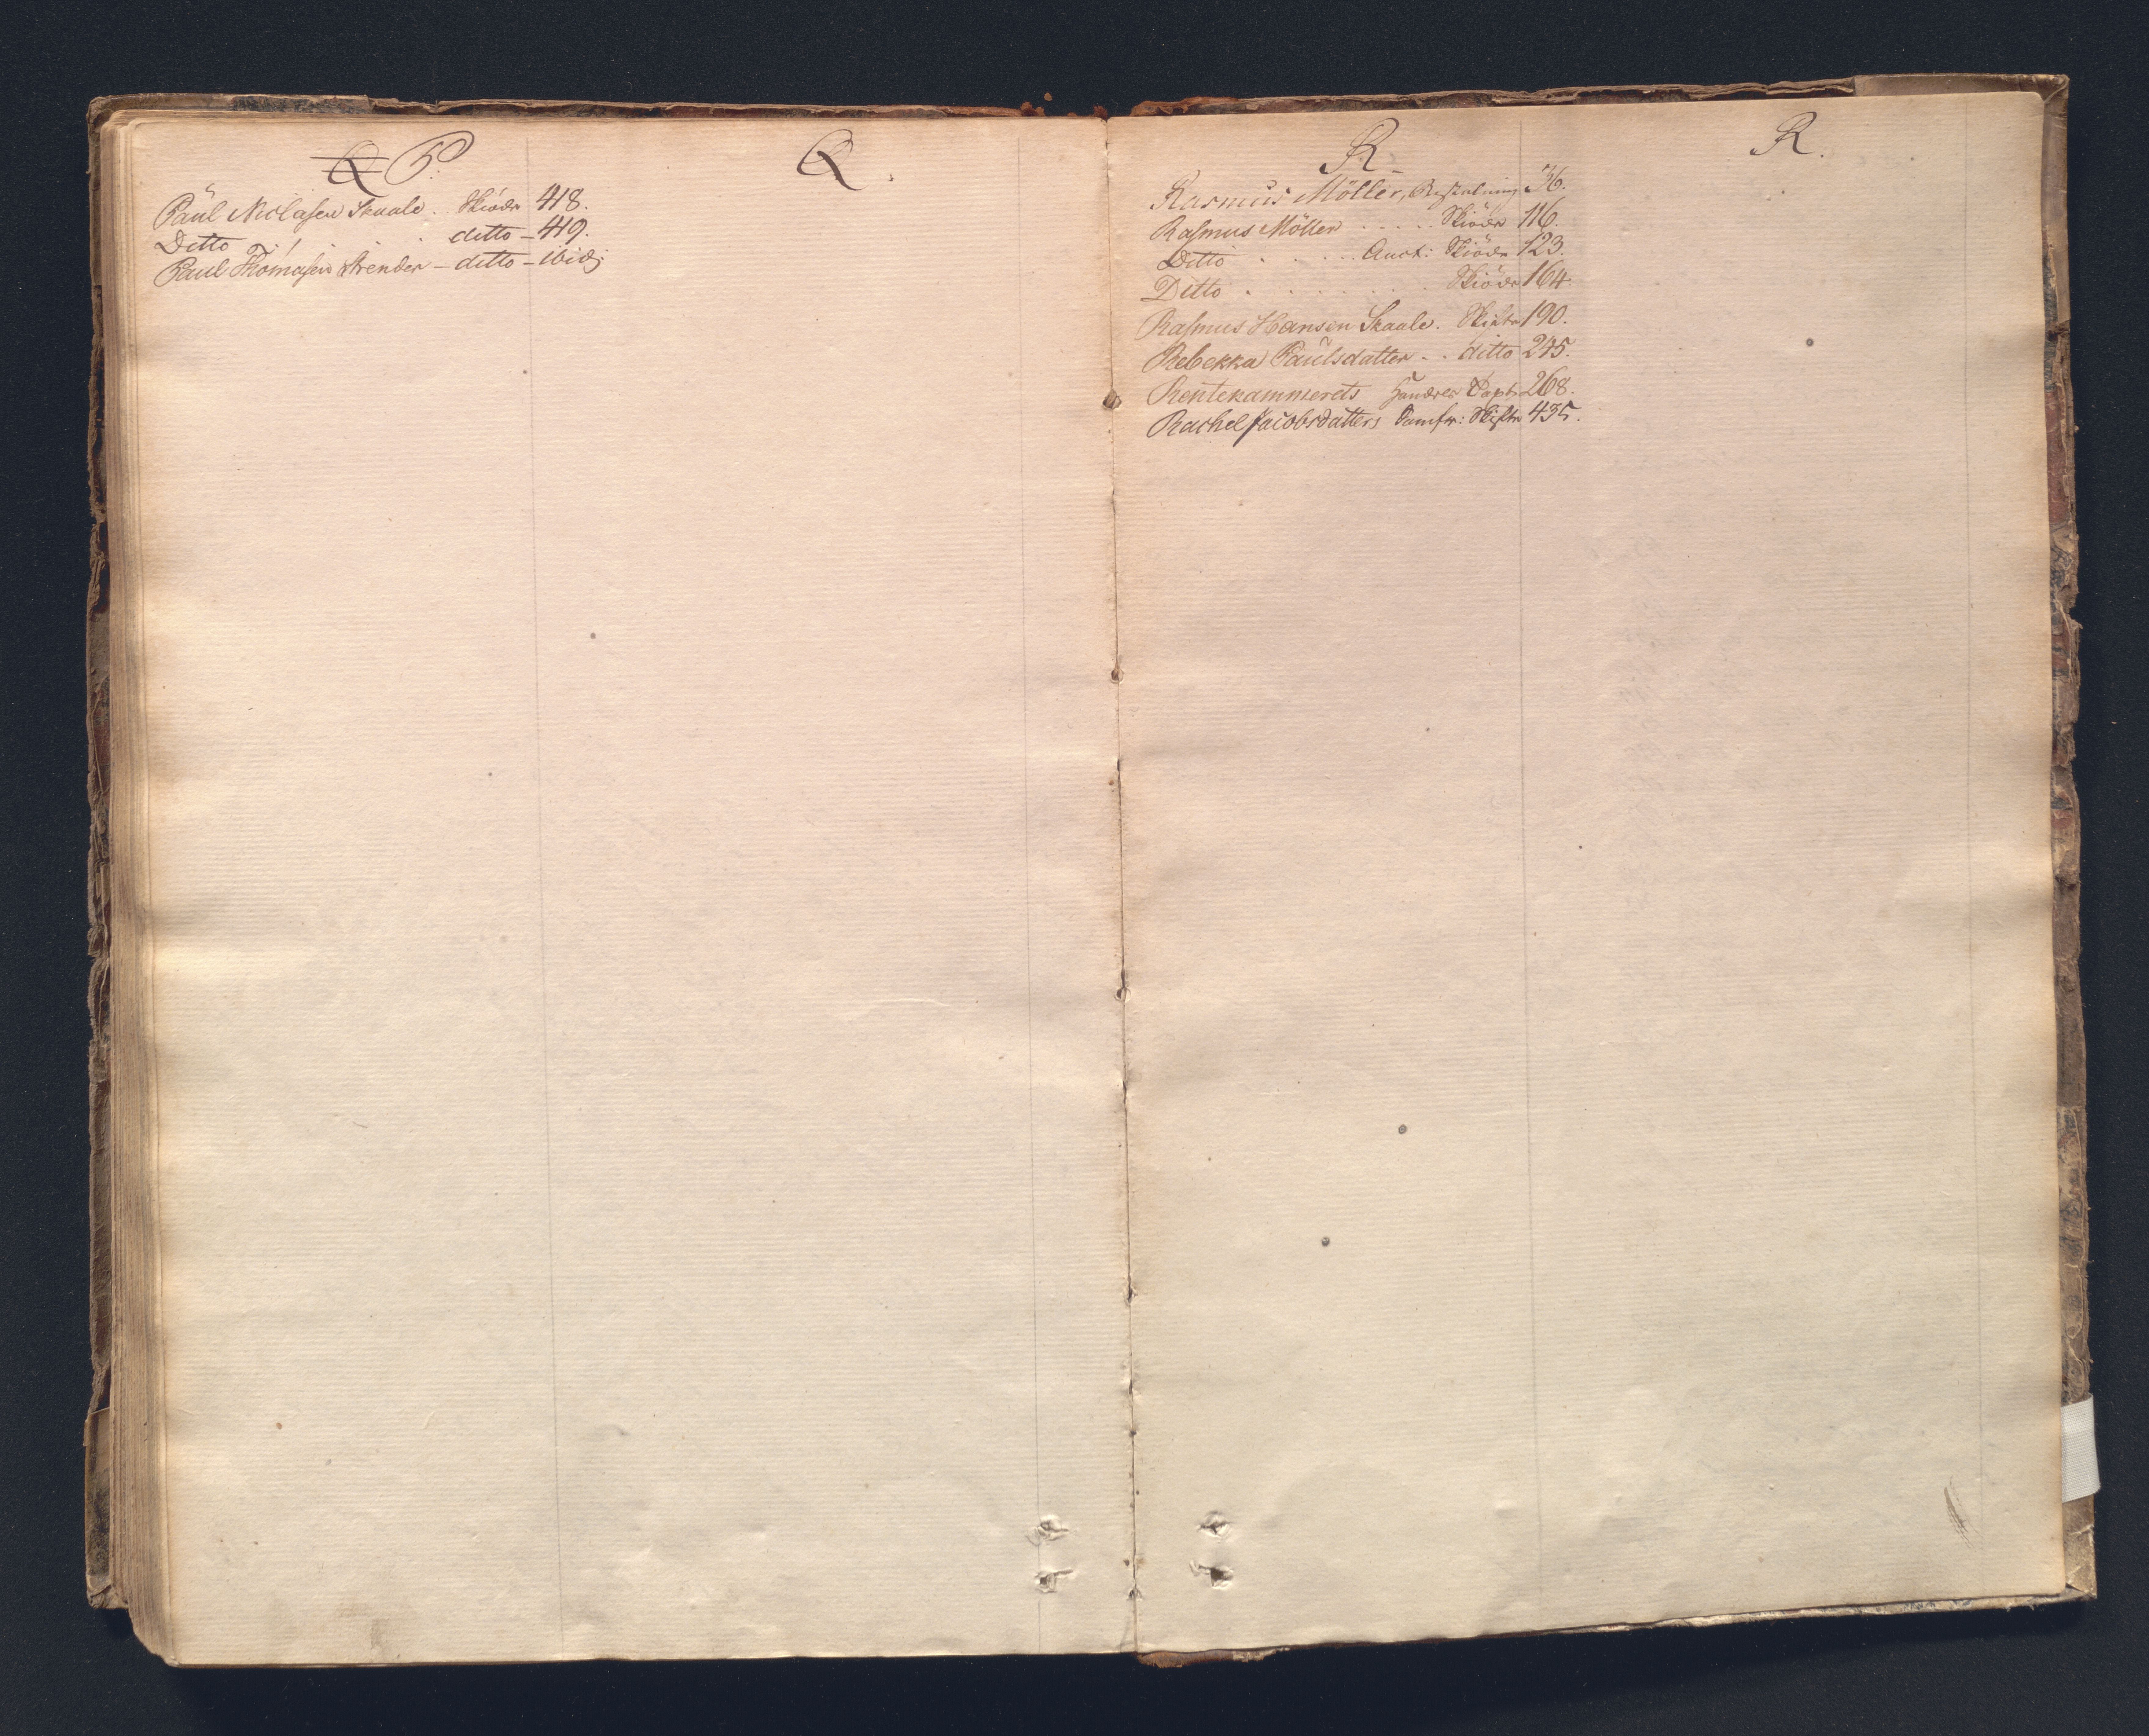 Q P.
Paul Niclasen Skaale. Skiöde 418.
Ditto . . ditto – 419.
Paul Thomasen Strender – ditto – ibid:
Q.
R
Rasmus Möller, Bestalning 36.
Rasmus Möller . . . . . Skiöde 116.
Ditto . . . . Auct: Skiöde 123.
Ditto . . . . . . . Skiöde 164.
Rasmus Hansen Skaale. Skifte 190.
Rebekka Paulsdatter . . ditto 245.
Rentekammerets 268.
Rachel Jacobsdatters Samfr: Skifte 435.
R.